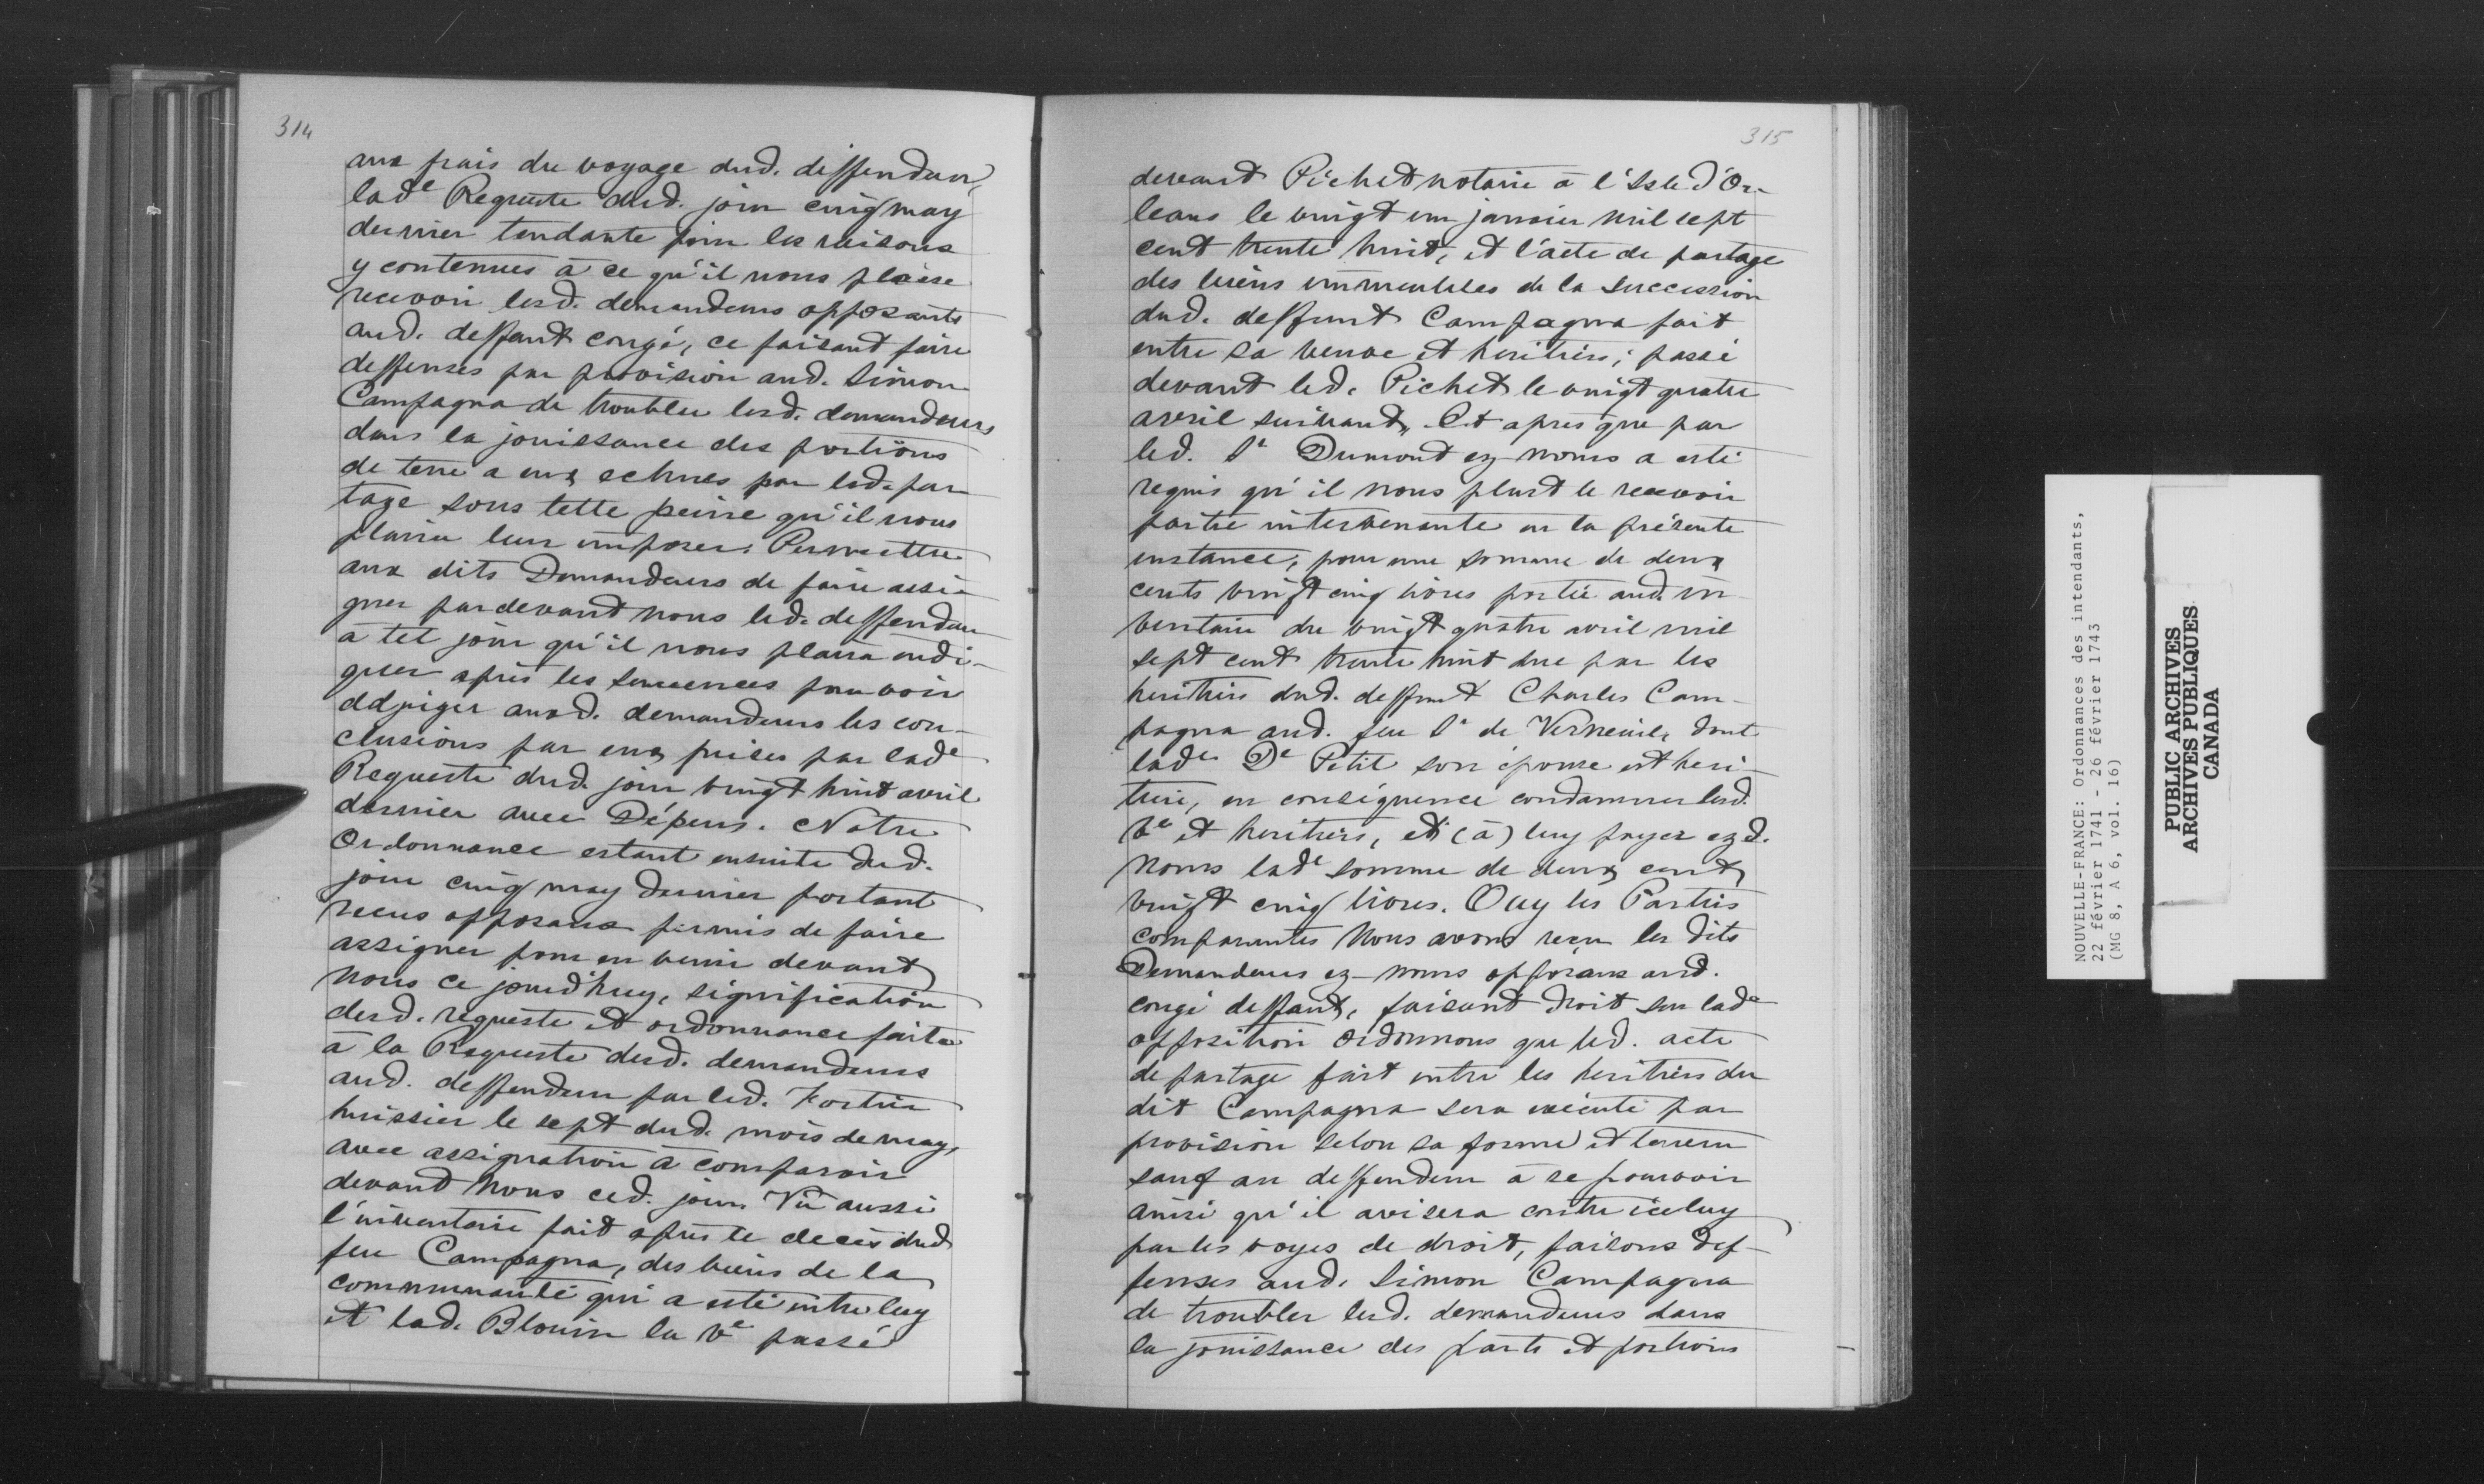 314
aux frais du voyage dud. deffendeur,
lade Requeste dud. jour cinq may
dernier tendante pour les raisons
y contenues à ce qu'il nous plaise
recevoir lesd. demandeurs opposants
aud. deffaut congé, ce faisant faire
deffenses par provision aud. Simon
Campagna de troubler lesd. demandeurs
dans la jouissance des portions
de terre a eux echues par led. par-
tage sous telle peine qu'il nous
plaira leur imposer; Permettre
aux dits Demandeurs de faire assi-
gner par devant nous led. deffendeur
à tel jour qu'il nous plaira indi-
quer après les semences pour voir
adjuger auxd. demandeurs les con-
clusions par eux prises par lade
Requeste dud. jour vingt huit avril
dernier avec Dépens. Notre
Ordonnance estant ensuite dud.
jour cinq may dernier portant
reçus opposans permis de faire
assigner pour en venir devant
nous ce jourd'huy, signification
desd. requeste et ordonnance faite
à la Requeste desd. demandeurs
aud. deffendeur par led. Fortier
huissier le sept dud. mois de may,
avec assignation à comparoir
devant Nous ced. jour. Vû aussi
l'inventaire fait après le decès dud
feu Campagna, des biens de la
communauté qui a esté entre luy
et lad. Blouin la Ve passé
315
devant Pichet notaire à l'Isle d'Or-
leans le vingt un janvier mil sept
cent trente huit, et l'acte de partage
des biens immeubles de la succession
dud. deffunt Campagna fait
entre sa veuve et heritiers; passé
devant led. Pichet le vingt quatre
avril suivant, Et après que par
led. Sr Dumont ez noms a esté
requis qu'il nous plust le recevoir
partie intervenante en la présente
instance, pour une somme de deux
cents vingt cinq livres portée aud. in-
ventaire du vingt quatre avril mil
sept cent trente huit due par les
heritiers dud. deffunt Charles Cam-
pagna aud. feu Sr de Verneuil, dont
lade De Petit son épouse est heri-
tiere, en conséquence condamner lesd.
Ve et heritiers, et (à) luy payer ezd.
Noms lade somme de deux cent
vingt cinq livres. Ouy les Parties
comparantes Nous avons reçu les dits
Demandeurs ez-noms opposans aud.
congé deffaut, faisant droit sur lade
opposition ordonnons que led. acte
de partage fait entre les heritiers du
dit Campagna sera exécuté par
provision selon sa forme et teneur
sauf au deffendeur à se pourvoir
ainsi qu'il avisera contre iceluy
par les voyes de droit, faisons def-
fenses aud. Simon Campagna
de troubler lesd. demandeurs dans
la jouissance des parts et portions
NOUVELLE-FRANCE: Ordonnances des intendants,
22 février 1741 - 26 février 1743
(MG 8, A 6, vol. 16)
PUBLIC ARCHIVES
ARCHIVES PUBLIQUES
CANADA